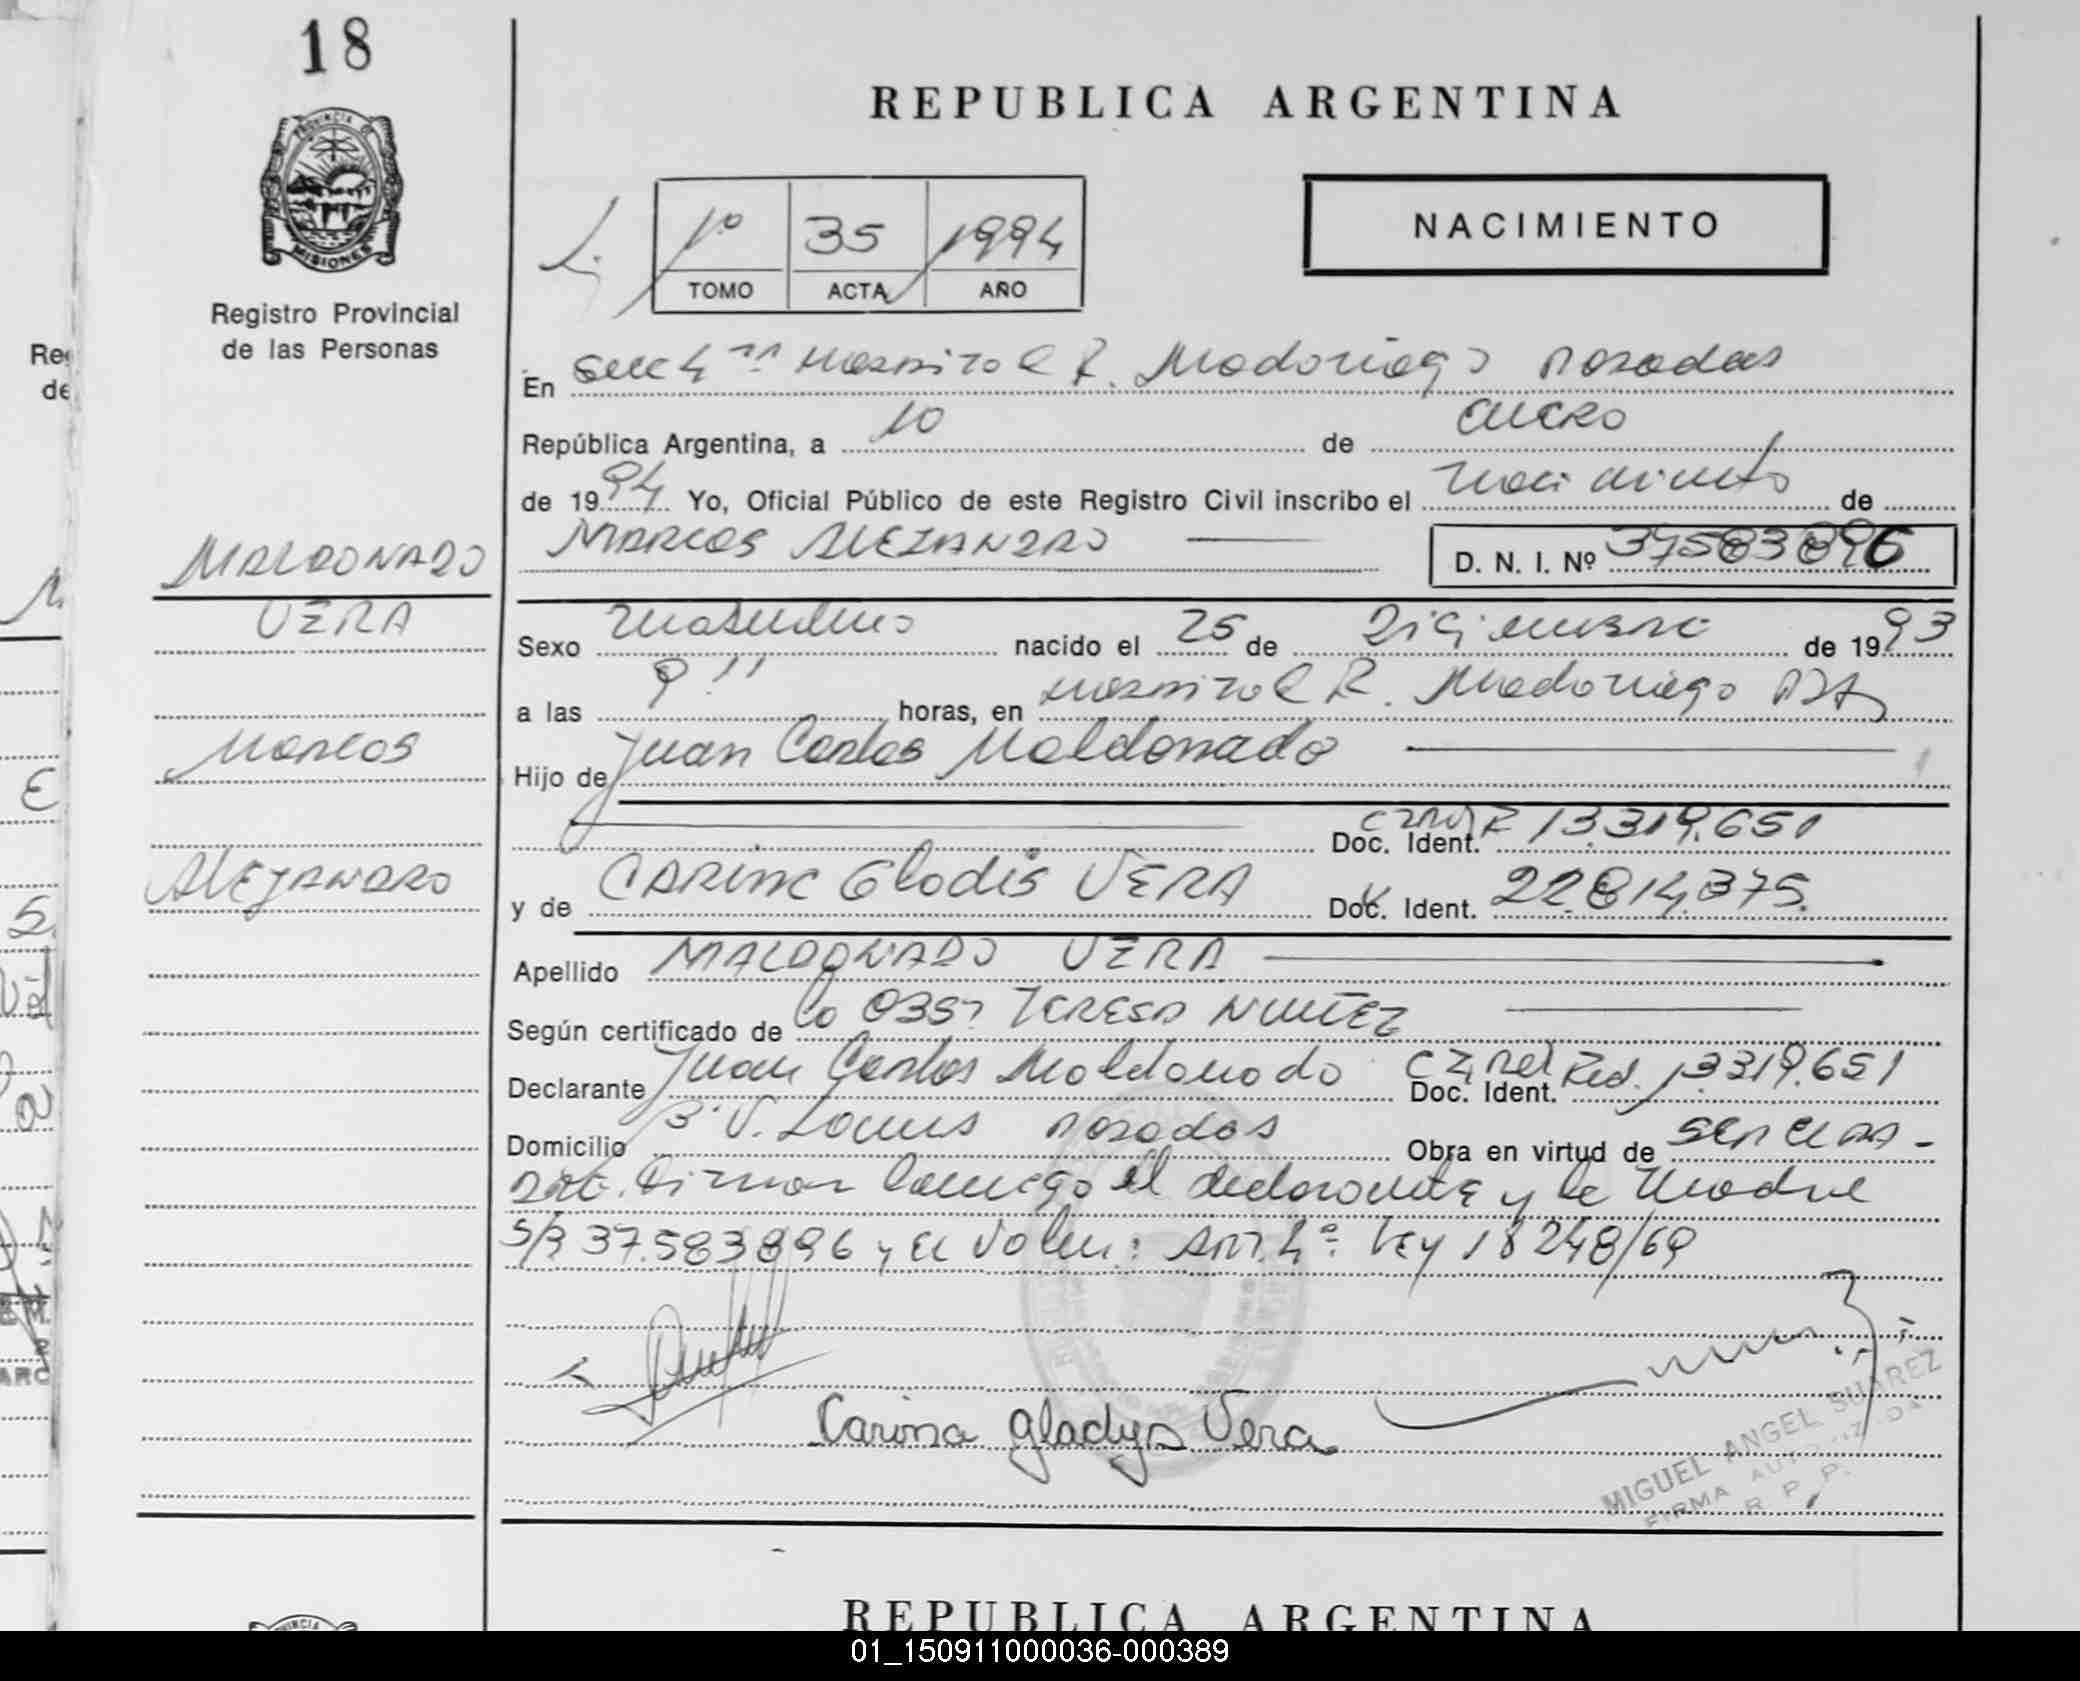 18
REPUBLICA ARGENTINA
PROVINCIA DE
MISIONES
Registro Provincial
de las Personas
1º 35 1994
TOMO ACTA AÑO
NACIMIENTO
En Secc 4ª Hospital R. Madariaga Posadas
República Argentina, a 10 de enero
de 1994 Yo, Oficial Público de este Registro Civil inscribo el nacimiento de
MARCOS ALEJANDRO D. N. I. Nº 37583896
MALDONADO
VERA
Marcos
ALEJANDRO
Sexo masculino nacido el 25 de Diciembre de 1993
a las 9 horas, en Hospital R. Madariaga
Hijo de Juan Carlos Maldonado
Doc. Ident. 13.319.651
y de CARINA Gladis VERA Doc. Ident. 22.814.375.
Apellido MALDONADO VERA
Según certificado de la Obst TERESA NUÑEZ
Declarante Juan Carlos Maldonado Doc. Ident. 13.319.651
Domicilio Bº V. Posadas Obra en virtud de
firman conmigo el declarante y la Madre
S/R 37.583.896 y Art. 4º Ley 18248/69
Carina Gladys Vera
MIGUEL ANGEL SUAREZ
FIRMA AUTORIZADA
R. P. P.
REPUBLICA ARGENTINA
01_150911000036-000389